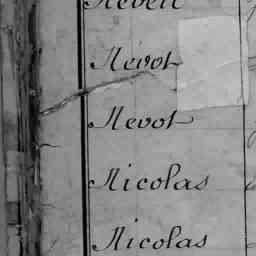 Neveu
Névot
Nevot
Nicolas
Nicolas